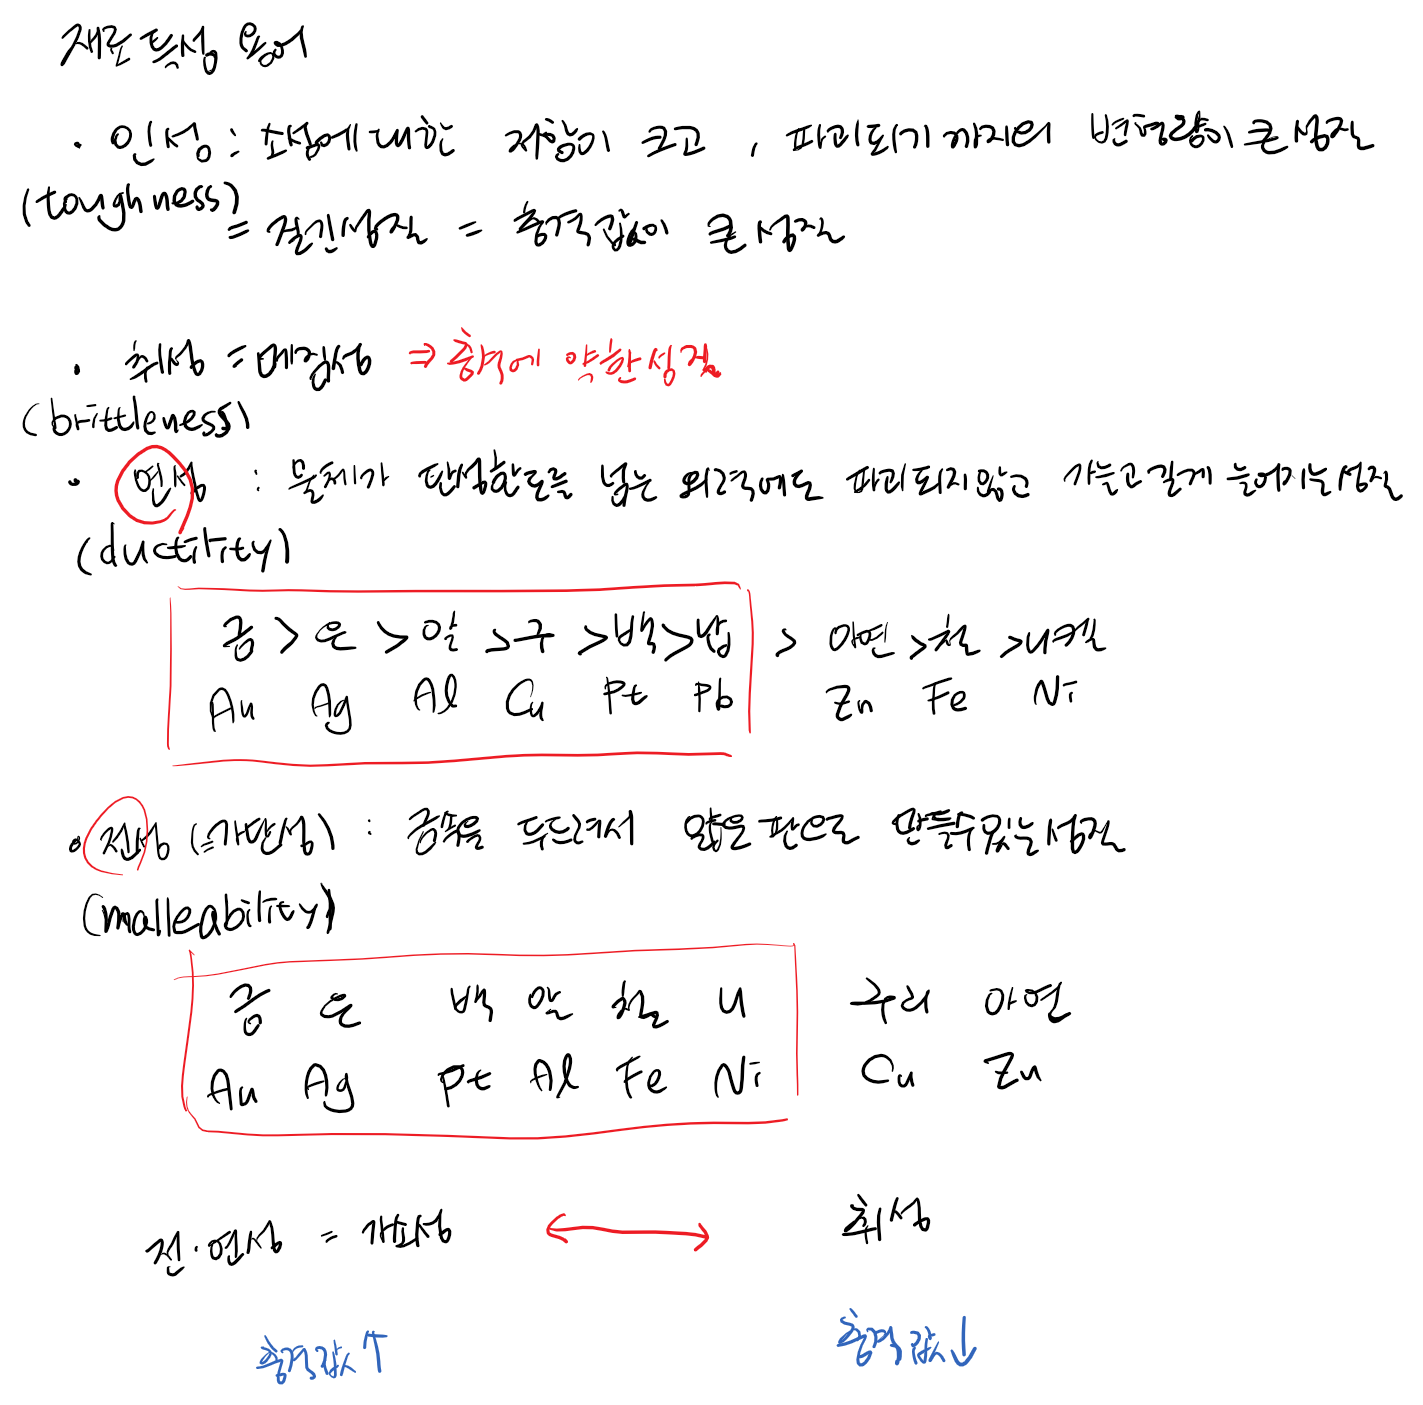 재료 특성 용어
· 인성 : 소성에 대한 저항이 크고 , 파괴되기 까지의 변형량이 큰 성질
(toughness)
= 질긴성질 = 충격값이 큰 성질
· 취성 = 메짐성 ⇒ 충격에 약한성질
(brittleness)
· 연성 : 물체가 탄성한도를 넘는 외력에도 파괴되지않고 가늘고 길게 늘어지는 성질
(ductility)
금 > 은 > 알 > 구 > 백 > 납 > 아연 > 철 > 니켈
Au Ag Al Cu Pt Pb Zn Fe Ni
· 전성 (=가단성) : 금속을 두드려서 얇은 판으로 만들수있는 성질
(malleability)
금 은 백 알 철 니 구리 아연
Au Ag Pt Al Fe Ni Cu Zn
전·연성 = 가소성 ↔ 취성
충격값↑ 충격값↓